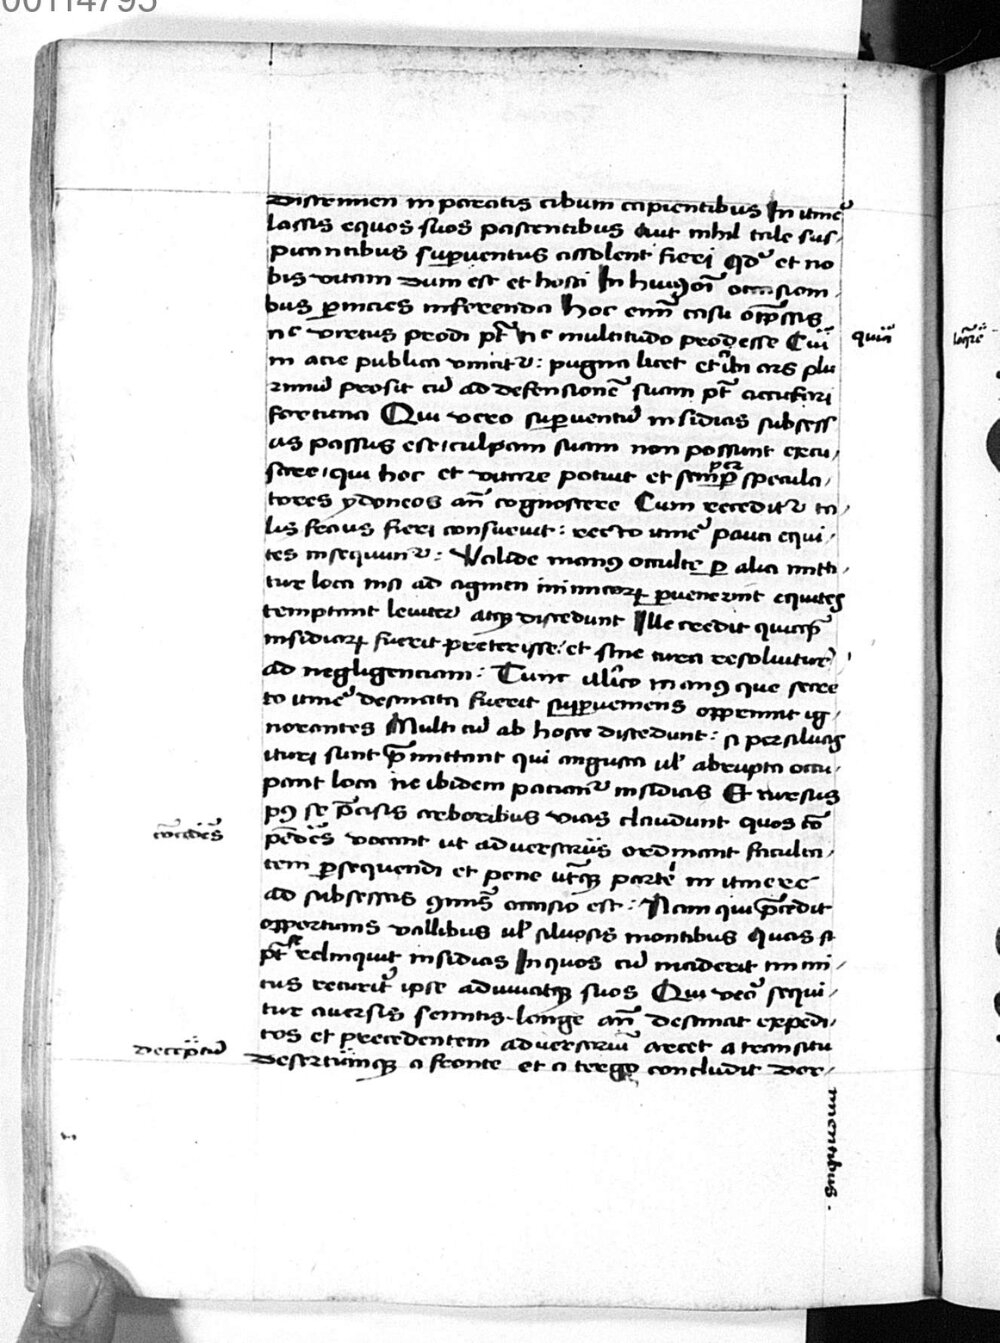 00114795
discrimen imparatis cibum capientibus In itine᷑
lassis equos suos pascentibus Aut nihil tale sus/
picantibus supuentus assolent fieri qd᷑ et no
bis vitam dum est et hosti In hui9 oī occasiōn
bus pnicies inferenda Hoc enī casu opp̄ssis
nc virtus prodi pt̄ nc multitudo prodesse Cui
in acie publica vincit᷑: pugna licet et ibi ars plu
rimū prosit cū ad defensionē suam pt̄ accusari
fortuna Qui vero supuentū insidias subsess
as passus est culpam suam non possunt excu/
sare qui hoc et vitare potuit et semp per specula/
tores ydoneos an̄ cognoscere Cum recedit᷑ ta/
lis fraus fieri consueuit: recto itine᷑ pauci equi/
tes insequunt᷑: Valide man9 occulte p alia mitti/
tur loca nisi ad agmen inimicorꝝ puenerint equites
temptant leuiter atqꝫ discedunt Ille credit quicqͥd
insidiarꝝ fuerit preterisse et sine cura resoluitur
ad negligenciam: Tunc illico man9 que secre
to itine᷑ destinata fuerit supueniens opprimit ig/
norantes Multi cū ab hoste discedunt: si per siluas
ituri sunt p̄mittant qui angusta ul̄ abrupta occu/
pant loca ne ibidem patiant᷑ insidias Et rursus
p9 se p̄cisis arboribus vias claudunt quos cō
pēdēs vocant ut aduersariis ordinant faculta/
tem psequendi et pene utq̄ꝫ parte in itinere
ad subsessas 9īs occasio est: Nam qui p̄cedit
opportunis vallibus ul̄ siluosis montibus quas si
pt̄ se relinquit insidias In quos cū inciderit inimi/
cus recurit ipse adiuuatqꝫ suos Qui vero sequi/
tur auersis semitis longe an̄ destinat expedi/
tos et precedentem aduersariū arcet a transitu
desertūmqꝫ a fronte et a tergo concludit Dor/
mientibus
quin
cōcedēs
deceptū